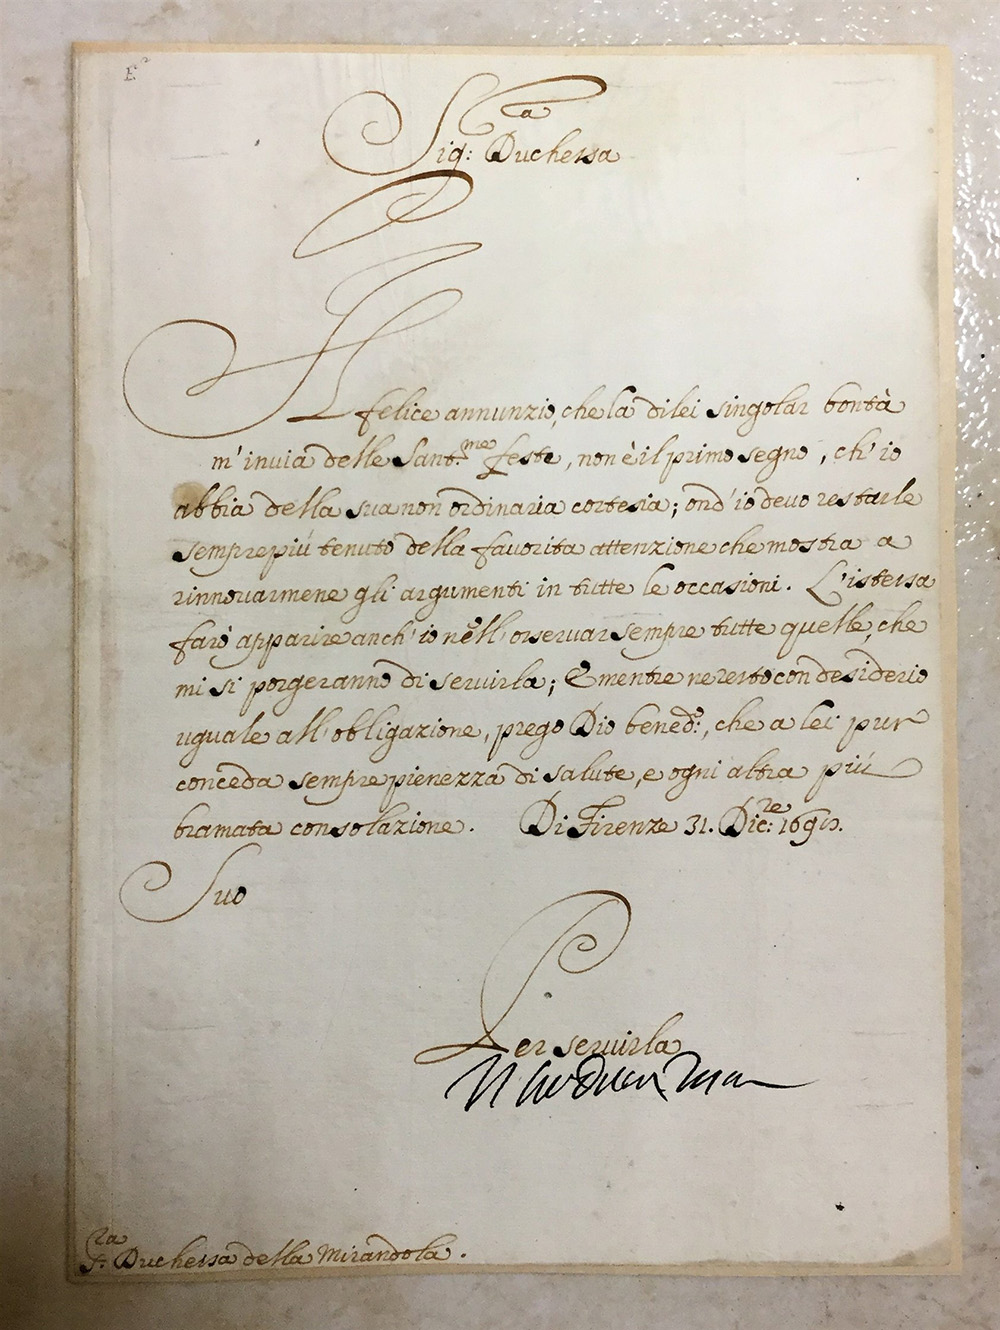 Sig:ra Duchessa
Il felice annunzio, che la di lei singolar bontà
m'invia delle Sant:me feste, non è il primo segno, ch'io
abbia della sua non ordinaria cortesia; ond'io devo restarle
sempre più tenuto della favorita attenzione che mostra a
rinnovarmene gli argumenti in tutte le occasioni. L'istessa
farò apparire anch'io nell'osservar sempre tutte quelle, che
mi si porgeranno di servirla; E mentre ne resto con desiderio
uguale all'obligazione, prego Dio bened:o, che a lei pur
conceda sempre pienezza di salute, e ogni altra più
bramata consolazione. Di Firenze 31. Dic:re
Suo
Per servirla
S:ra Duchessa della Mirandola.